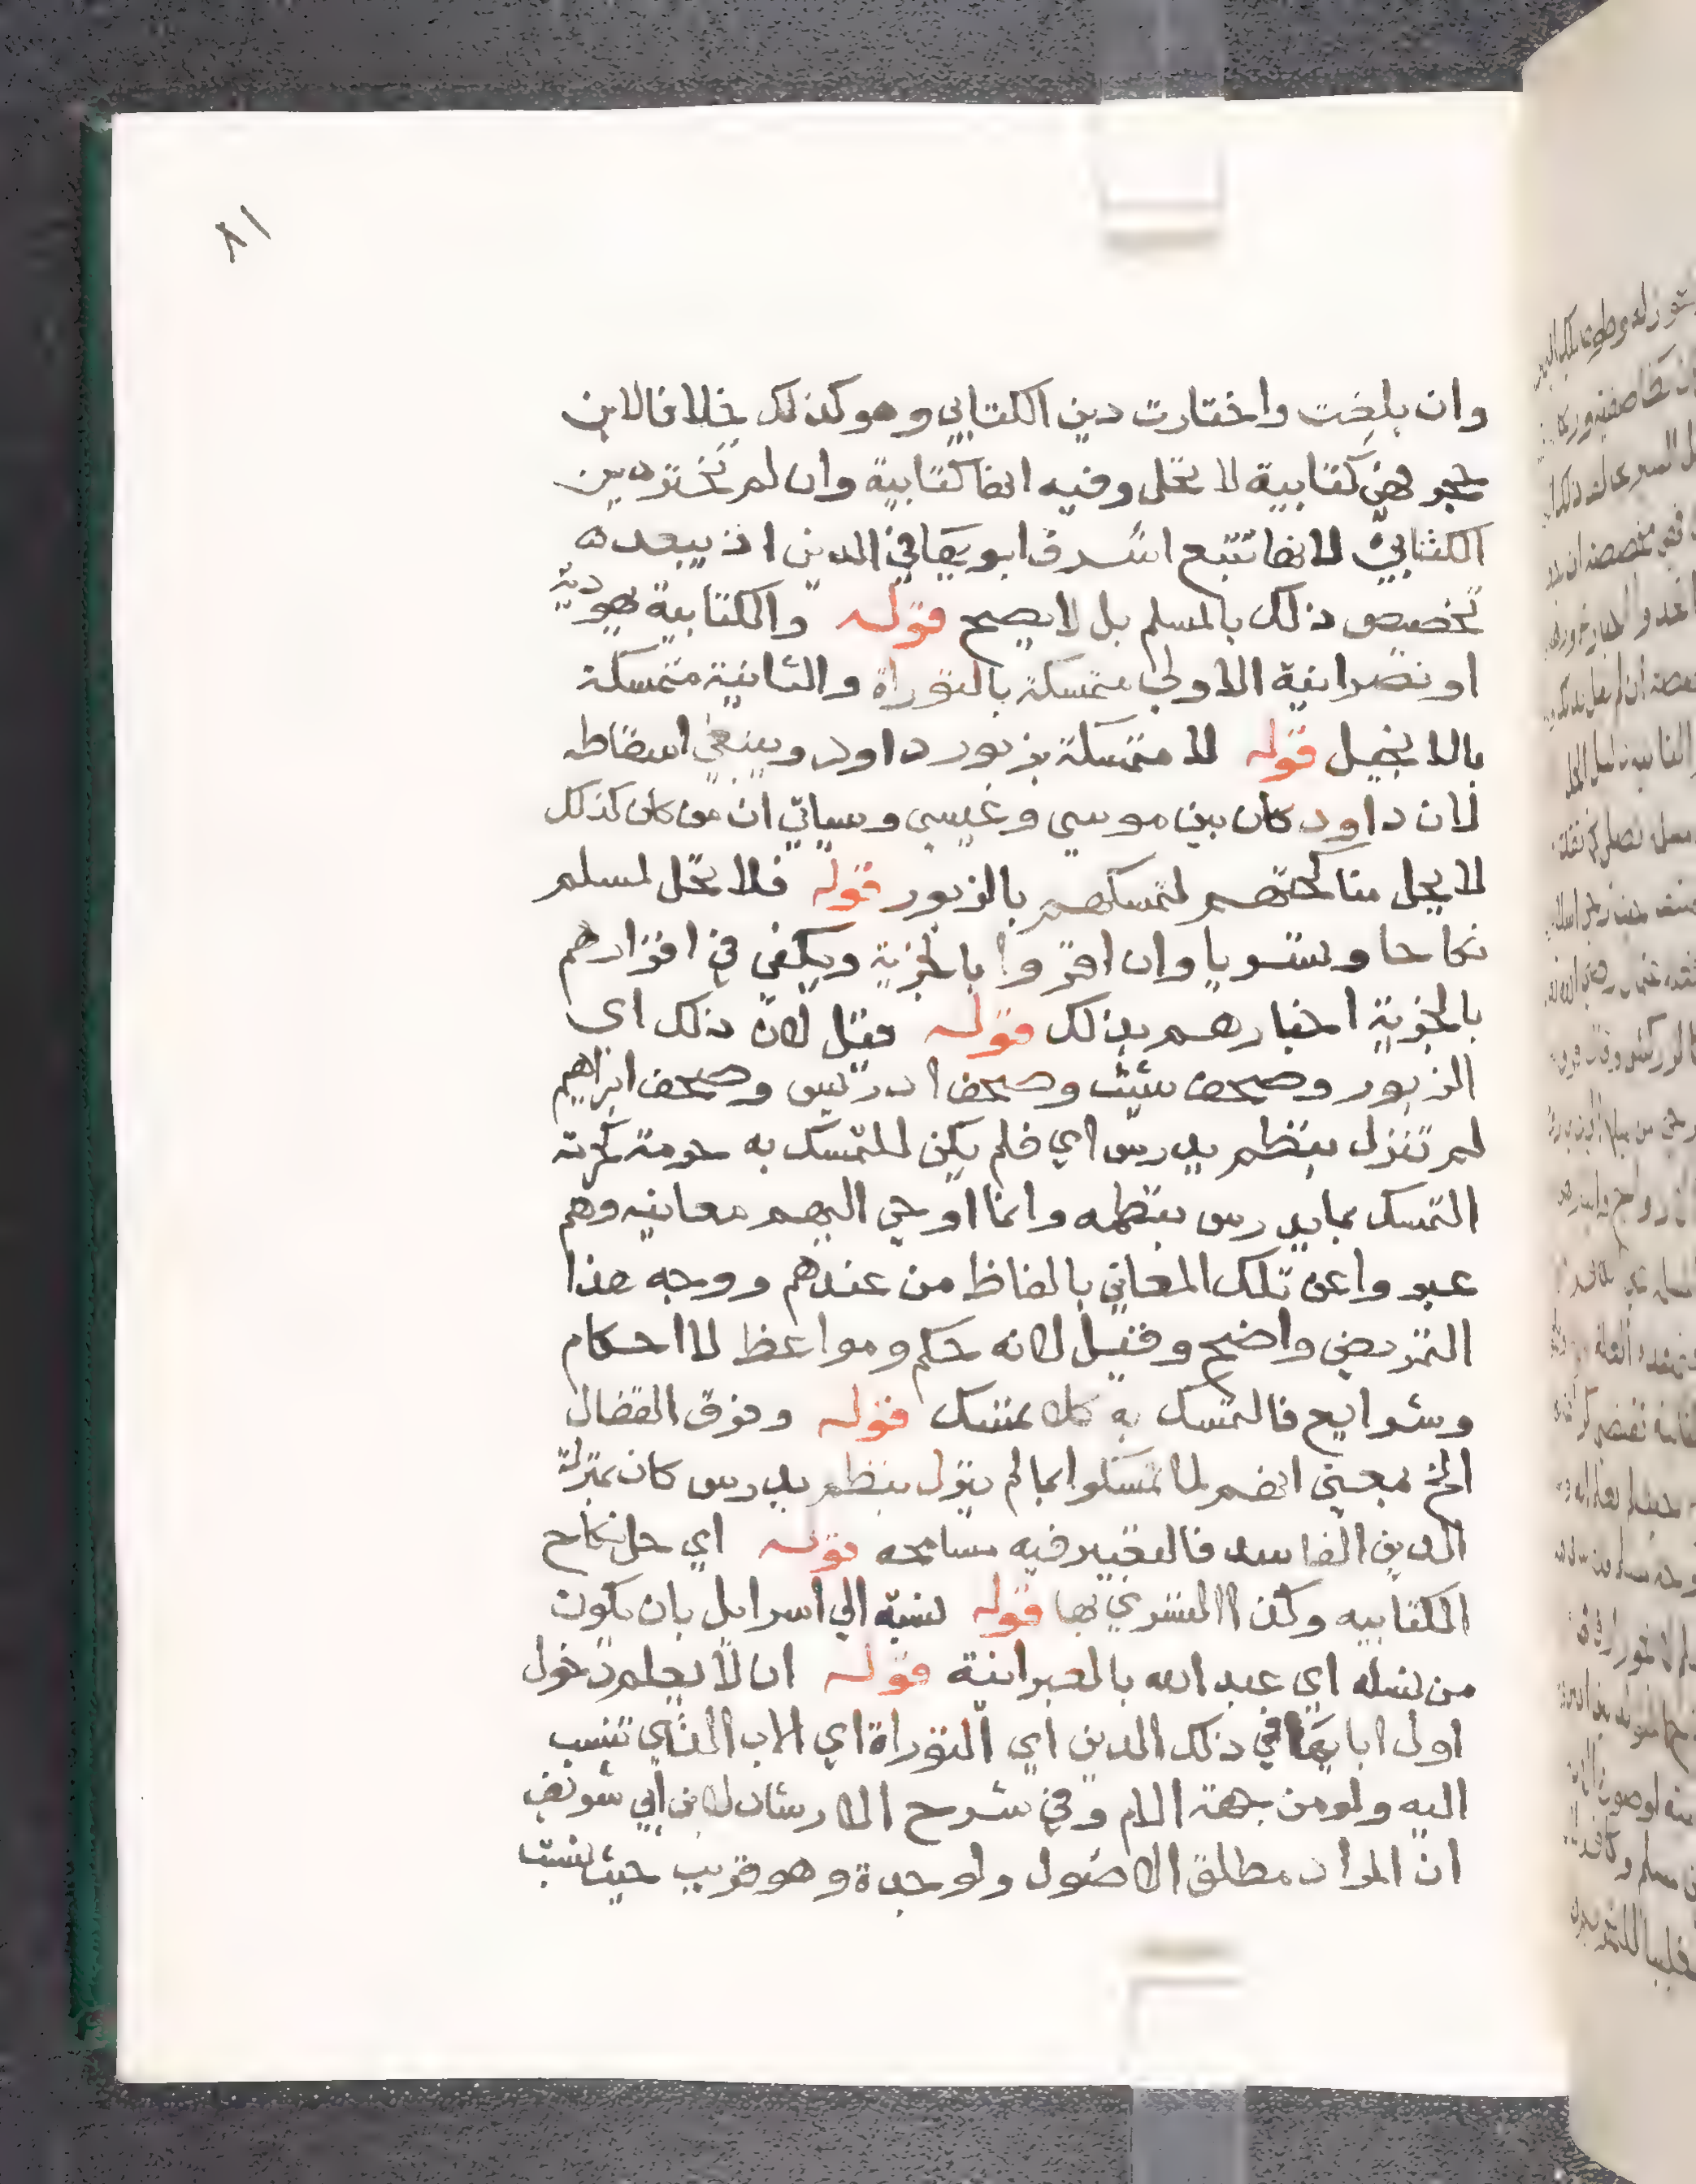 ٨١
وان بلغت واختارت دين الكتابي وهو كذلك خلافا لابن
حجر فهي كتابية لا تحل وفيه انها كتابية وان لم تختر دين
الكتابي لانها تتبع اشرف ابويها في الدين اذ يبعد ه
تخصيص ذلك بالمسلم بل لا يصح قوله والكتابية يهودية
او نصرانية الاولي متمسكة بالتوراة والثانية متمسكة
بالانجيل قوله لا متمسكة بزبور داود وينبغي اسقاطه
لان داود كان بين موسي وعيسي وسياتي ان من كان كذلك
لا يحل مناكحتهم لتمسكهم بالزبور قوله فلا تحل لمسلم
نكاحا وتسريا وان اقروا بالجزية ويكفي في اقرارهم
بالجزية اخبارهم بذلك قوله قيل لان ذلك اي
الزبور وصحف شيث وصحف ادريس وصحف ابراهيم
لم تنزل بنظم يدرس اي فلم يكن للتمسك به حرمة كحرمة
التمسك بما يدرس بنظمه وانما اوحي اليهم معانيه وهم
عبروا عن تلك المعاني بالفاظ من عندهم ووجه هذا
التمريض واضح وقيل لانه حكم ومواعظ لا احكام
وشرايع فالتمسك به كلا تمسك قوله وفرق القفال
الخ بمعني انهم لما تمسكوا بما لم ينزل بنظم يدرس كان بمنزلة
الدين الفاسد فالتعبير فيه مسامحه قوله اي حل نكاح
الكتابيه وكذا التسري بها قوله نسبة الي اسرايل بان يكون
من نسله اي عبد الله بالعبرانية قوله ان لا يعلم دخول
اول ابايها في ذلك الدين اي التوراة اي الاب الذي تنسب
اليه ولو من جهة الام وفي شرح الارشاد لابن ابي شريف
ان المراد مطلق الاصول ولو جدة وهو قريب حيث نسبت